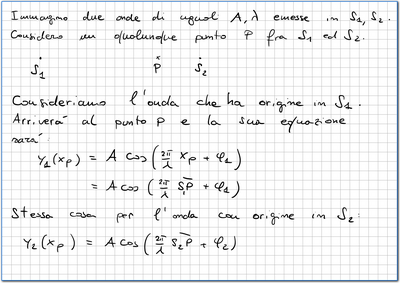 Immagino due onde di ugual A, λ emesse in S₁, S₂.
Considero un qualunque punto P fra S₁ ed S₂.
S₁ P S₂
Consideriamo l'onda che ha origine in S₁.
Arriverà al punto P e la sua equazione
sarà:
y₁(x_P) = A cos(2π/λ x_P + φ₁)
= A cos(2π/λ S̅₁P̅ + φ₁)
Stessa cosa per l'onda con origine in S₂:
y₂(x_P) = A cos(2π/λ S̅₂P̅ + φ₂)